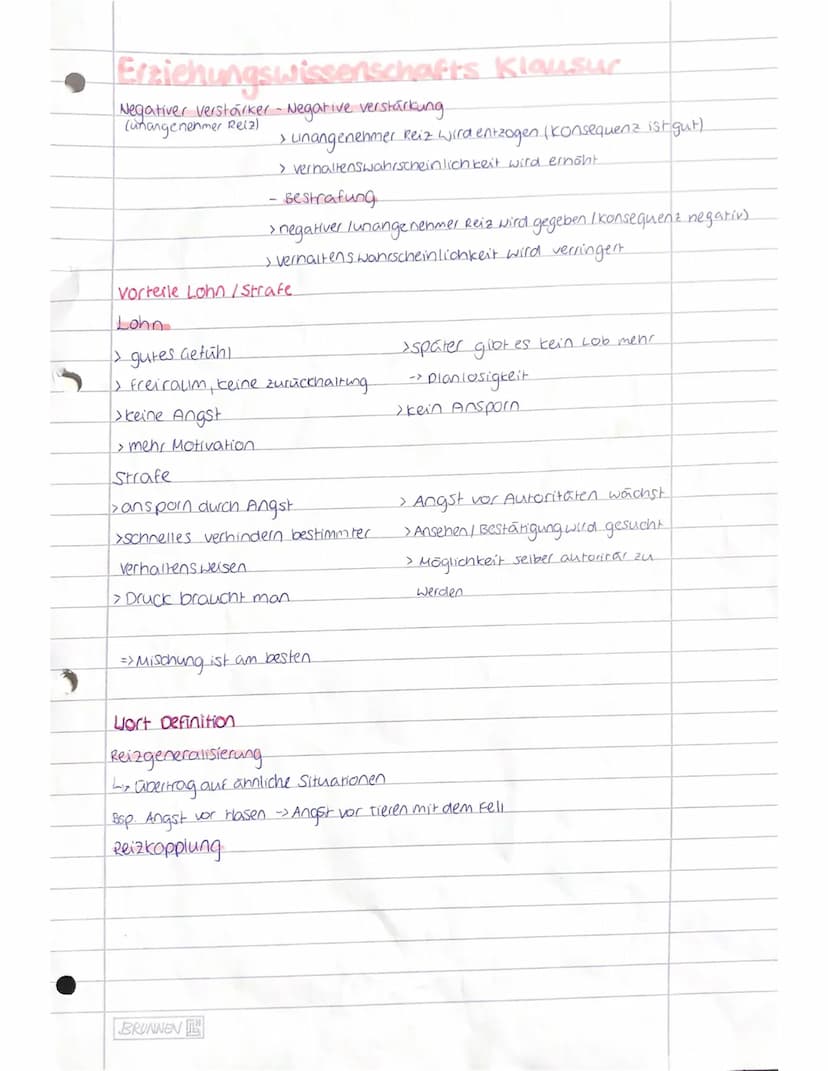 Erziehungswissenschafts Klausur
Negativer verstärker - Negative verstärkung
(unangenehmer Reiz)
> unangenehmer Reiz wird entzogen (Konsequenz ist gut)
> verhaltenswahrscheinlichkeit wird erhöht
- Bestrafung
> negativer / unangenehmer Reiz wird gegeben (Konsequenz negativ)
> verhaltenswahrscheinlichkeit wird verringert
Vorteile Lohn / Strafe
Lohn
> gutes Gefühl
> Freiraum, keine zurückhaltung
> keine Angst
> mehr Motivation
> später gibt es kein Lob mehr
-> Planlosigkeit
> kein Ansporn
Strafe
> ansporn durch Angst
> schnelles verhindern bestimmter
verhaltensweisen
> Druck braucht man
> Angst vor Autoritäten wächst
> Ansehen / Bestätigung wird gesucht
> Möglichkeit selber autoritär zu
werden
=> Mischung ist am besten
Wort Definition
Reizgeneralisierung
↳ übertrag auf ähnliche Situationen
Bsp. Angst vor Hasen -> Angst vor Tieren mit dem Fell
Reizkopplung
BRUNNEN